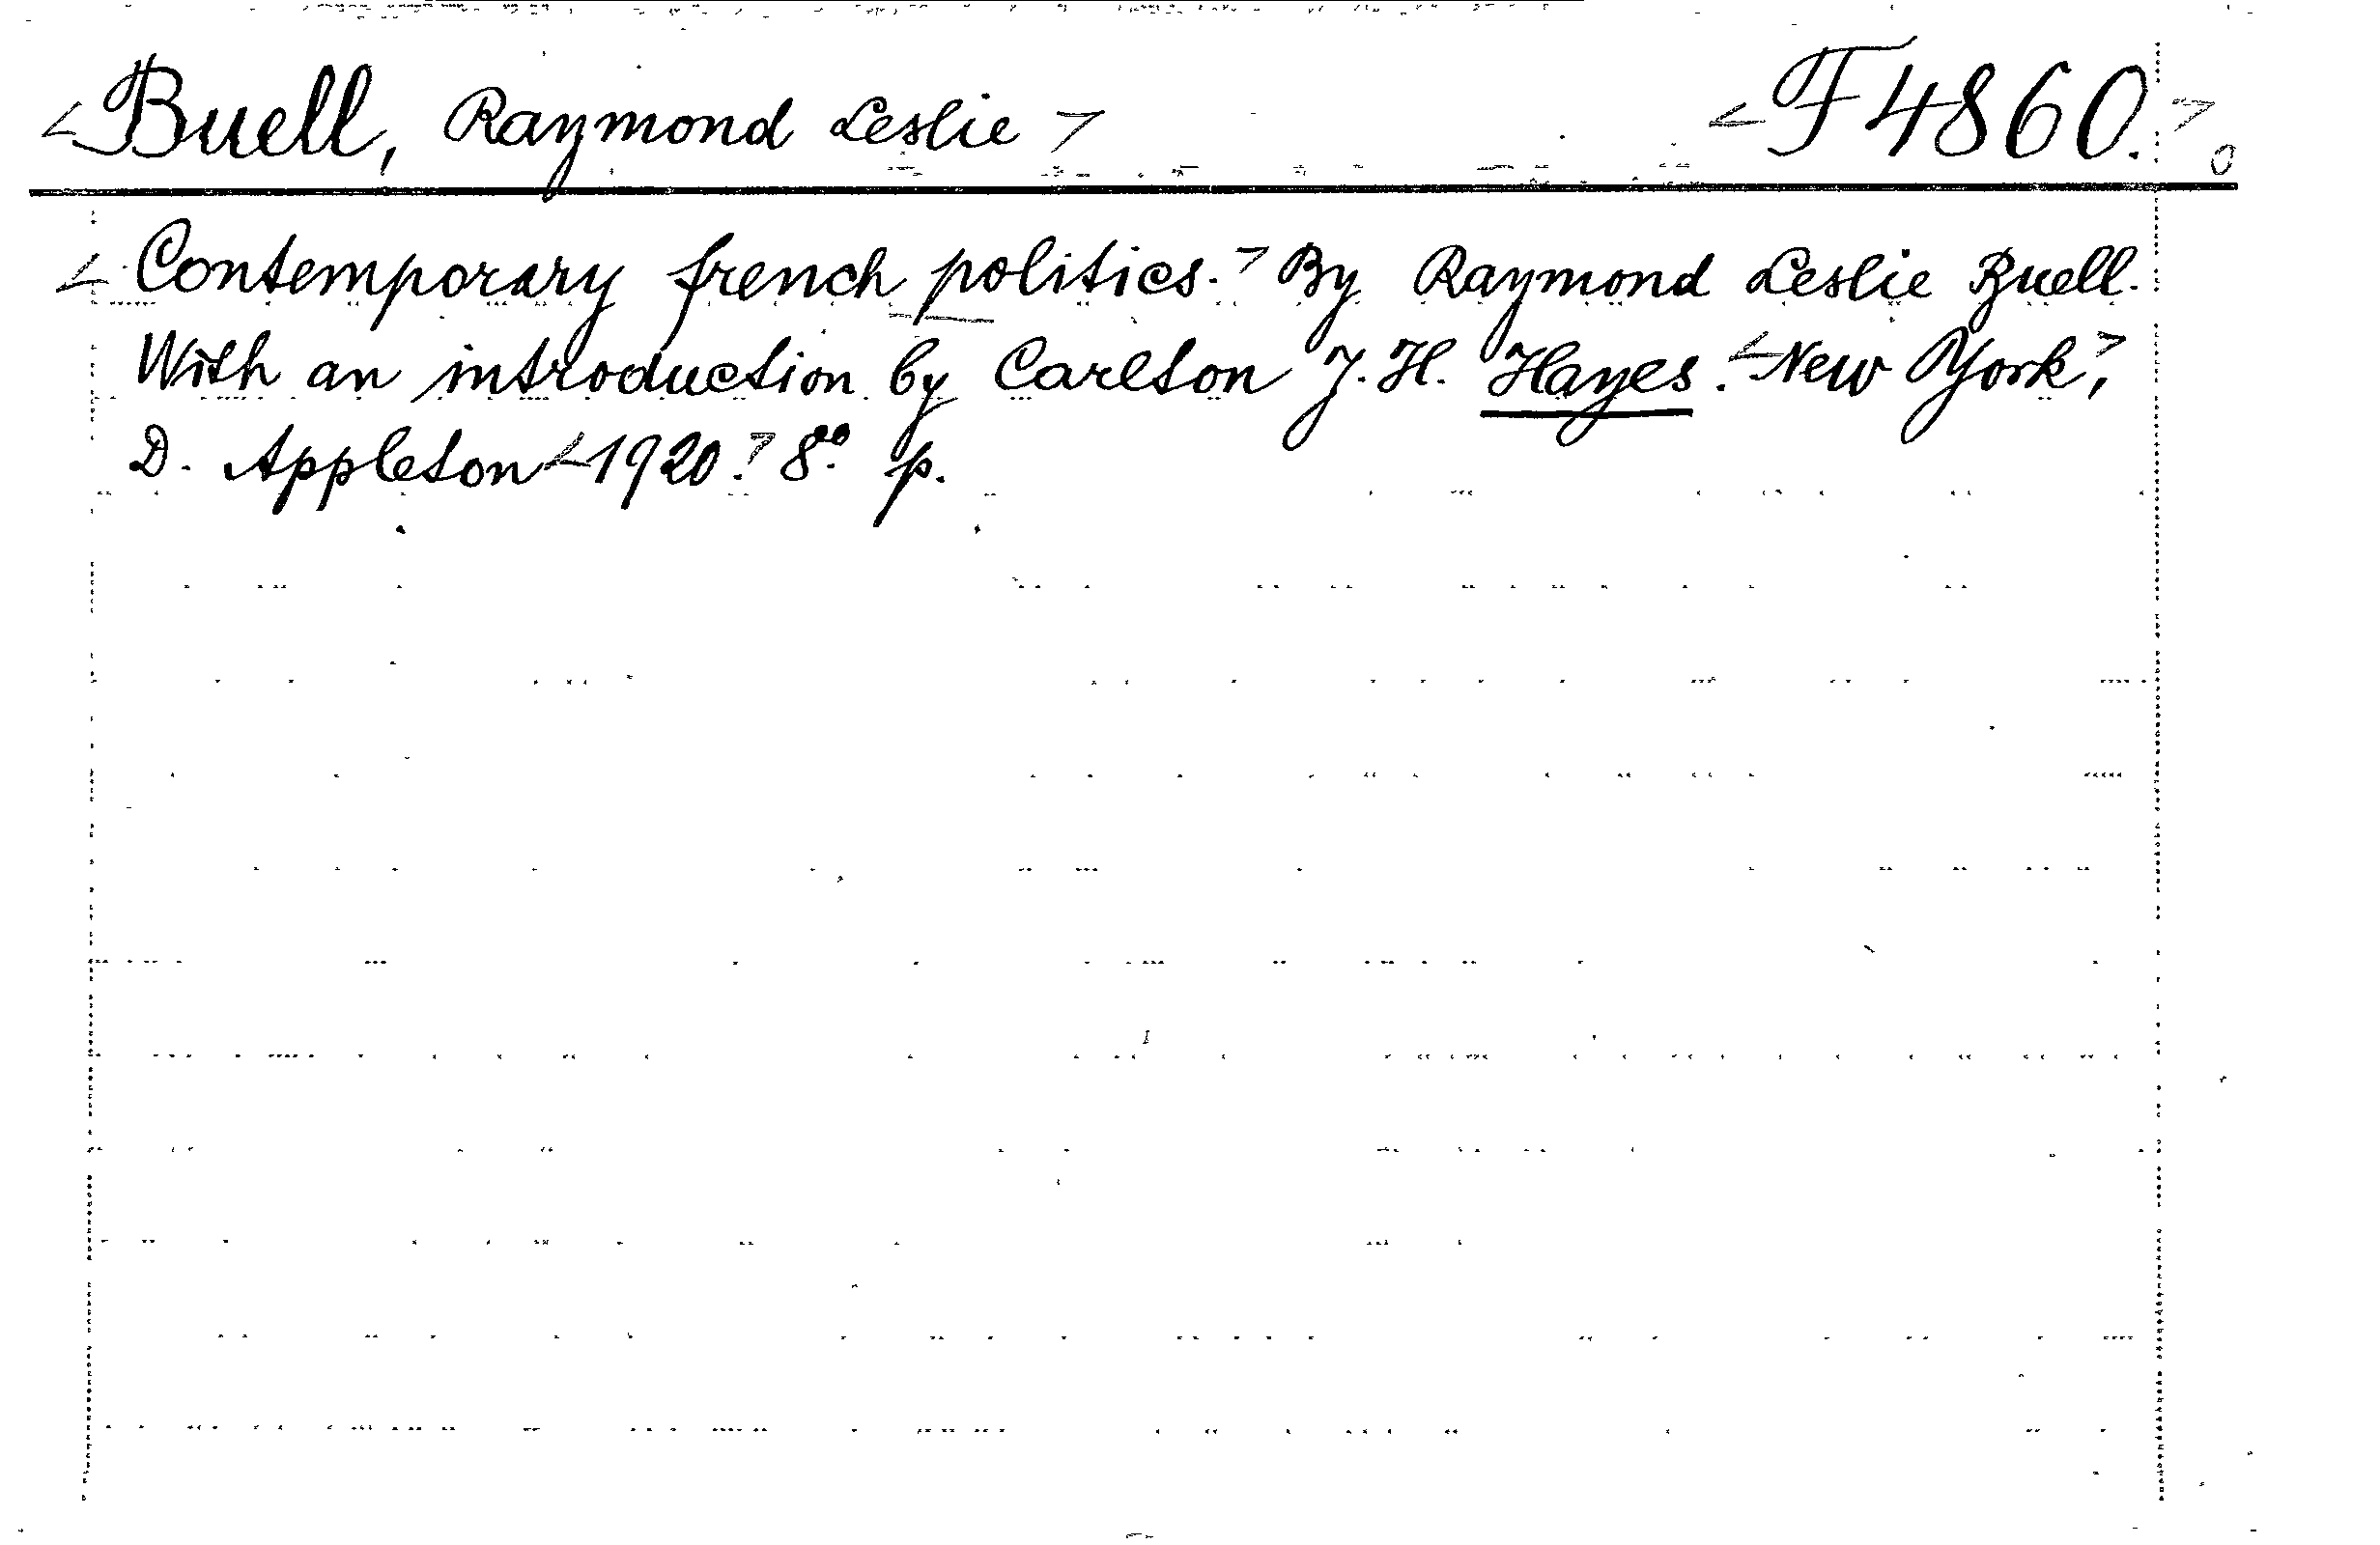 <Buell, Raymond Leslie> <F 4860.> 0
<Contemporary french politics.> By Raymond Leslie Buell.
With an introduction by Carlton J. H. Hayes. <New York>,
D. Appleton <1920.> 8°. p.